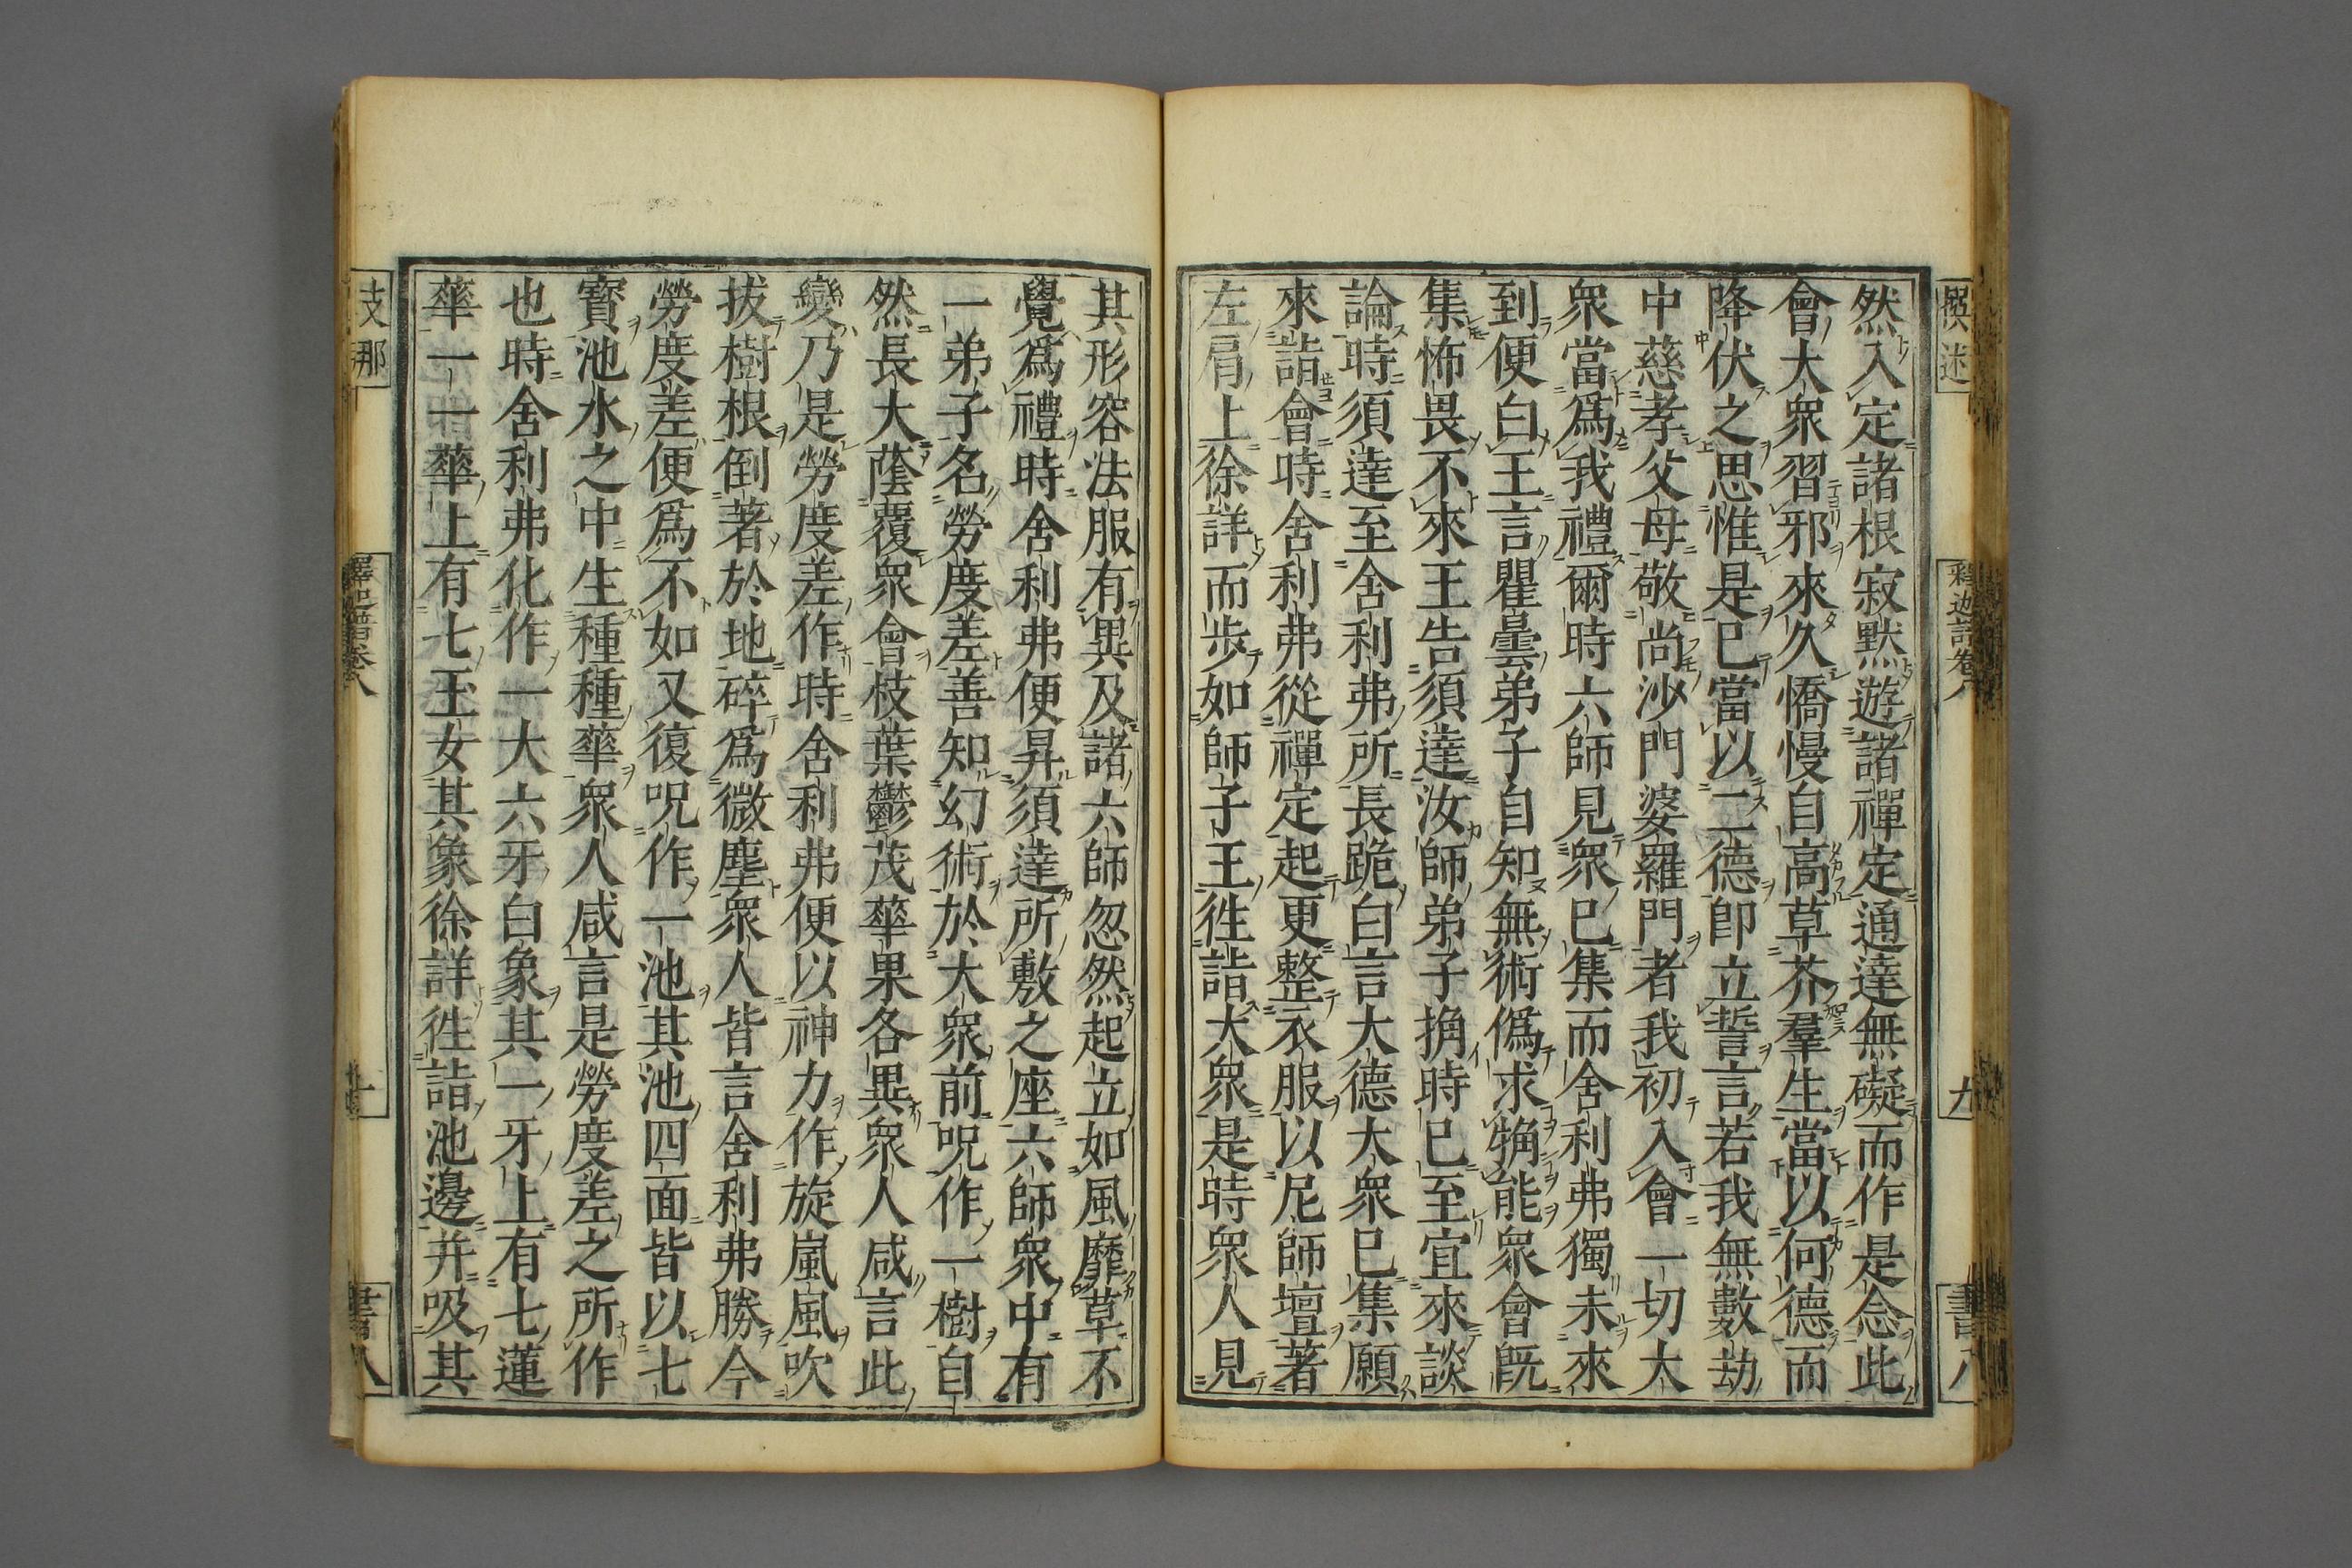 然入定諸根寂默遊諸禪定通達無礙而作是念此
會大衆習邪來久憍慢自高草芥羣生當以何德而
降伏之思惟是已當以二德卽立誓言若我無數劫
中慈孝父母敬尚沙門婆羅門者我初入會一切大
衆當爲我禮爾時六師見衆已集而舍利弗獨未來
到便白王言瞿曇弟子自知無術僞求㧓能衆會旣
集怖畏不來王告須達汝師弟子捔時已至宜來談
論時須達至舍利弗所長跪白言大德大衆已集願
來詣會時舍利弗從禪定起更整衣服以尼師壇著
左肩上徐詳而步如師子王徃詣大衆是時衆人見
其形容法服有異及諸六師忽然起立如風靡草不
覺爲禮時舍利弗便昇須達所敷之座六師衆中有
一弟子名勞度差善知幻術於大衆前呪作一樹自
然長大蔭覆衆會枝葉鬱茂華果各異衆人咸言此
變乃是勞度差作時舍利弗便以神力作旋嵐風吹
拔樹根倒著於地碎爲微塵衆人皆言舍利弗勝今
勞度差便爲不如又復呪作一池其池四面皆以七
寶池水之中生種種華衆人咸言是勞度差之所作
也時舍利弗化作一大六牙白象其一牙上有七蓮
華一一華上有七玉女其象徐詳徃詣池邊并吸其
支那
釋迦譜卷八
九